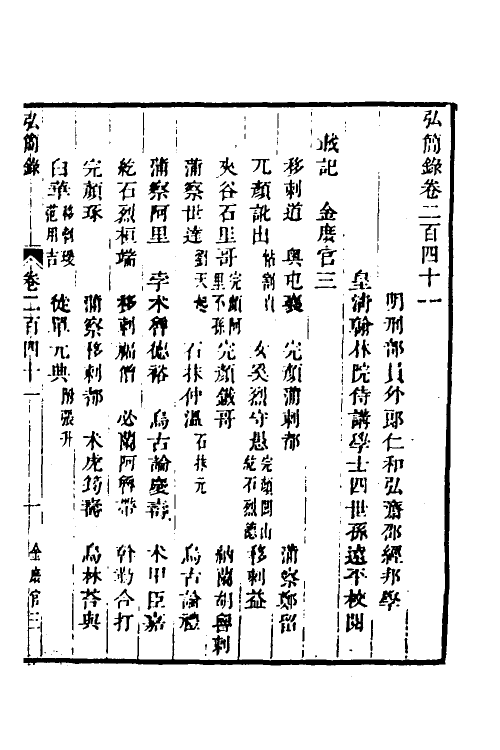 弘簡錄卷二百四十一
明刑部員外郎仁和弘齋邵經邦學
皇清翰林院侍講學士四世孫遠平校閱
載記 金庶官三
移剌道 與屯襄 完顏蒲剌都 蒲察鄭留
完顏訛出 粘割貞 女奚烈守愚 完顏閭山 紇石烈德 移剌益
夾谷石里哥 完顏阿里不孫 完顏鐵哥 納蘭胡魯剌
蒲察世達 劉天起 石抹仲溫 石抹元 烏古論禮
蒲察阿里 孛朮魯德裕 烏古論慶壽 朮甲臣嘉
紇石烈桓端 移剌福僧 必蘭阿魯帶 斡勒合打
完顏琢 蒲察移剌都 朮虎筠壽 烏林荅與
白華 移剌瑗 范用吉 徒單兀典 附張升
弘簡錄 卷二百四十一 一 金庶官三